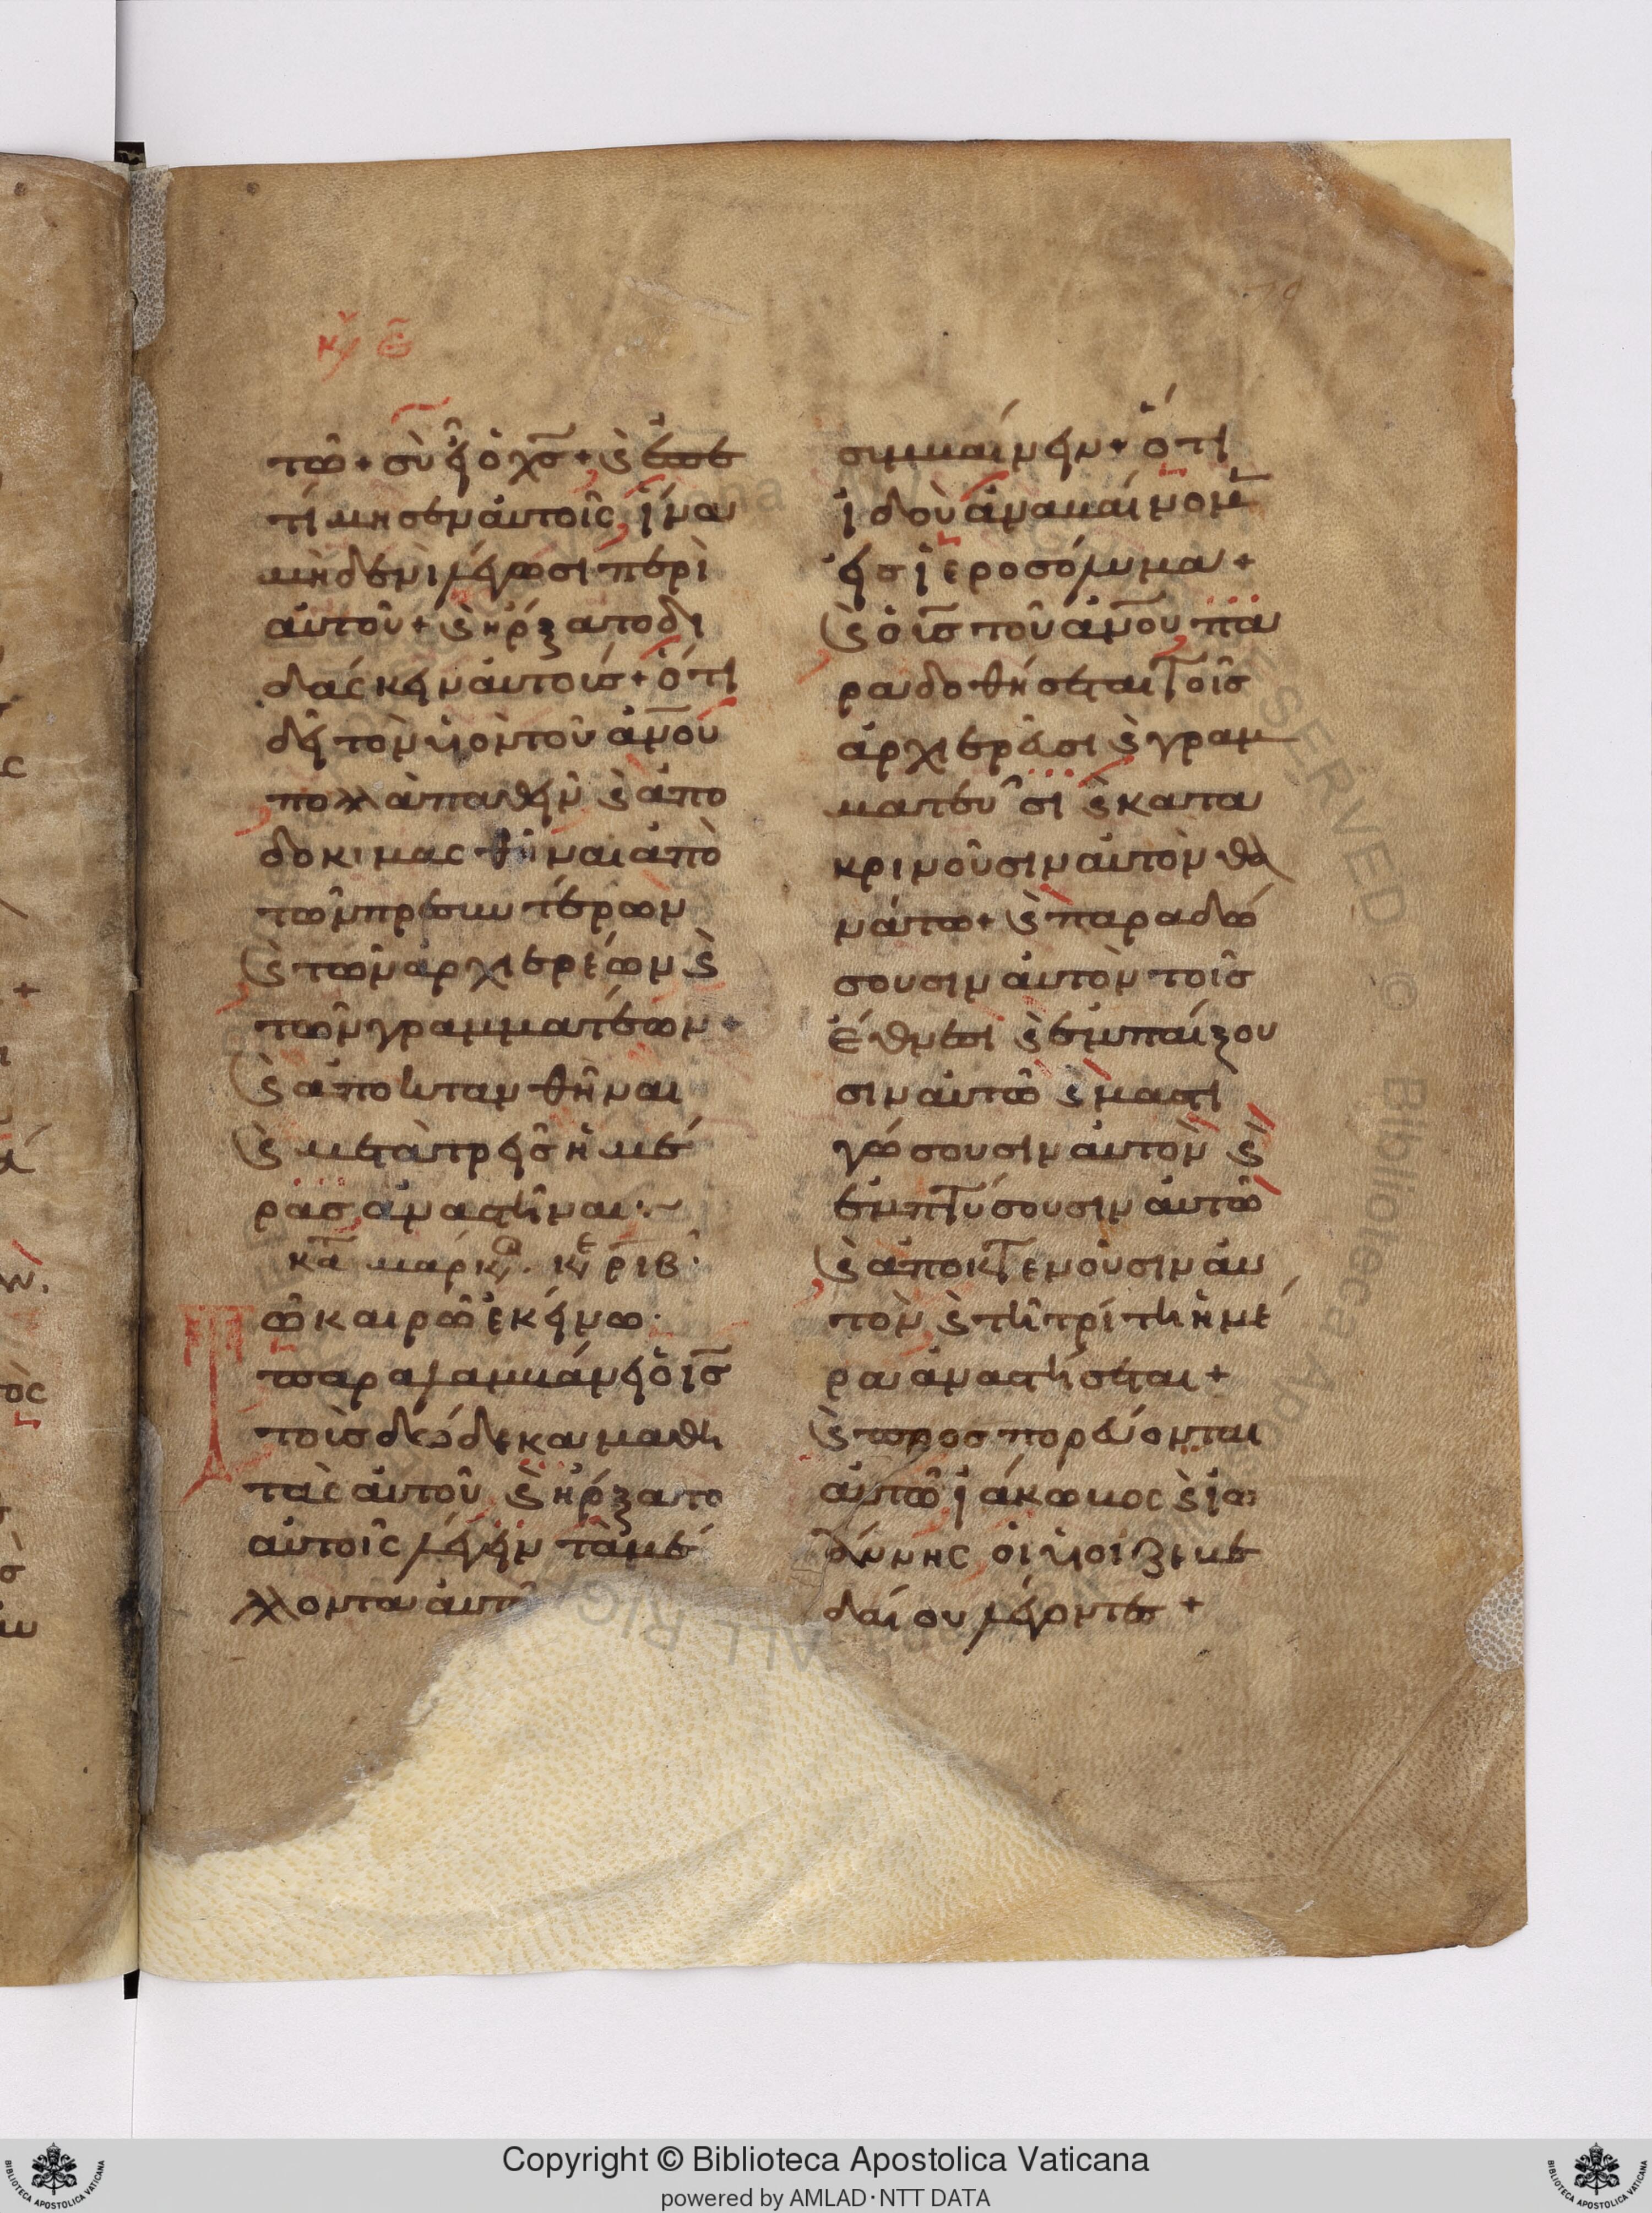 κυ ε
τῶ + σὺ εἶ ὁ χσ̅ + ϗ ἐπε
τίμησεν αὐτοῖς ἵνα
μηδενὶ λέγωσι περὶ
αὐτοῦ + ϗ ἤρξατο δι
δάςκειν αὐτοὺσ + ὅτι
δεῖ τὸν υἱὸν τοῦ ἀν̅ου
πολλὰ παθεῖν ϗ ἀπο
δοκιμασθῆναι ἀπὸ
τῶν πρεσβυτέρων
ϗ τῶν ἀρχιερέων ϗ
τῶν γραμματέων +
ϗ ἀποκτανθῆναι
ϗ μετὰ τρεῖσ ἡμέ
ρασ ἀναστῆναι:~
κατ μάρκ. κε ριβ·
Τῶ καιρῶ ἐκείνω·
παραλαμβάνει ὁ ισ̅
τοὺσ δώδεκα μαθη
τὰς αὐτοῦ ϗ ἤρξατο
αὐτοῖς λέγειν τὰ μέ
λλοντα αὐτ
συμβαίνειν + ὅτι
ἰδοὺ ἀναβαίνομ
εἰσ ἱεροσόλυμα +
ϗ ὁ υισ̅ τοῦ ἀν̅ου πα
ραδοθήσεται τοῖσ
ἀρχιερεῦσι ϗ γραμ
ματεῦσι ϗ κατα
κρινοῦσιν αὐτὸν θα
νάτω + ϗ παραδώ
σουσιν αὐτὸν τοῖσ
ἔθνεσι ϗ ἐμπαίξου
σιν αὐτῶ ϗ μαστι
γώσουσιν αὐτὸν ϗ
ἐμπτύσουσιν αὐτῶ
ϗ ἀποκτενοῦσιν αὐ
τὸν ϗ τῆ τρίτη ἡμέ
ρα ἀναστήσεται +
ϗ προσπορεύονται
αὐτῶ ἰάκωβος ϗ ἰω
άννης οἱ υἱοὶ ζεβε
δαίου λέγοντεσ +
Copyright © Biblioteca Apostolica Vaticana
powered by AMLAD·NTT DATA